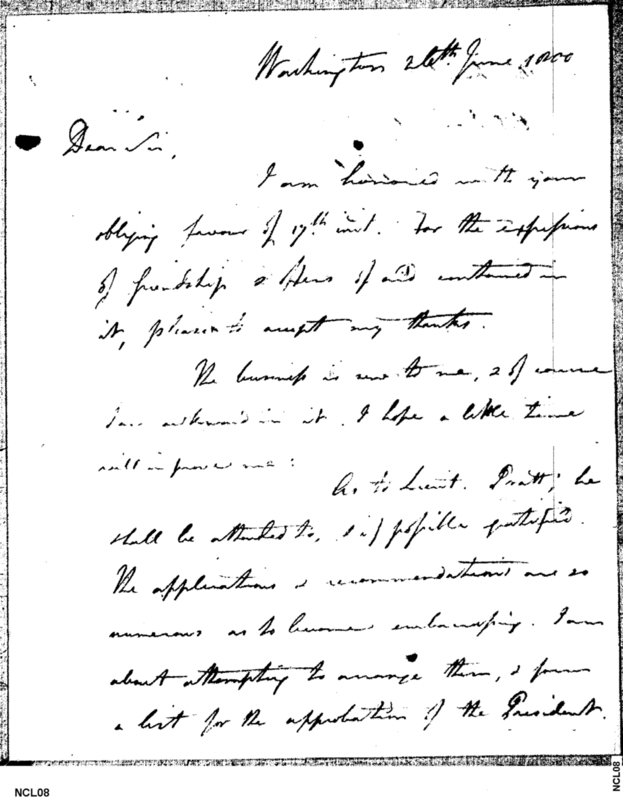 Washington 26th June 1800
Dear Sir,
I am honored with your
obliging favour of 17th inst. For the expressions
of friendship & offers of aid contained in
it, please to accept my thanks.
The business is new to me, & of course
I am awkward in it. I hope a little time
will improve me:
As to Lieut. Pratt, he
shall be attended to, & if possible gratified.
The applications & recommendations are so
numerous as to become embarrassing. I am
about attempting to arrange them, & form
a list for the approbation of the President.
NCL08
NCL08